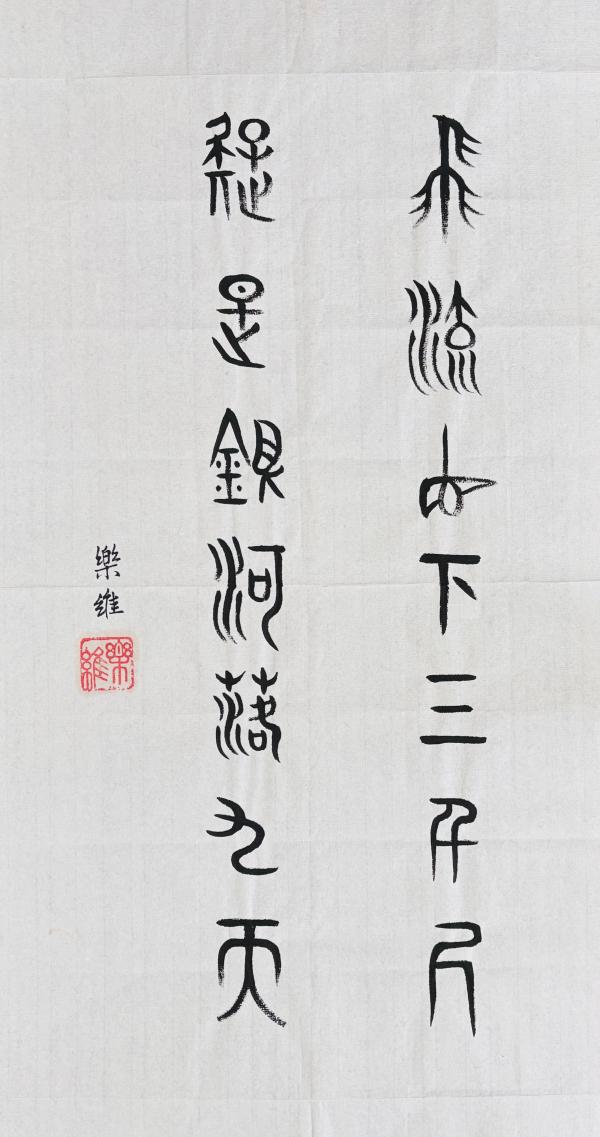 飛流直下三千尺
疑是銀河落九天
樂維
樂維